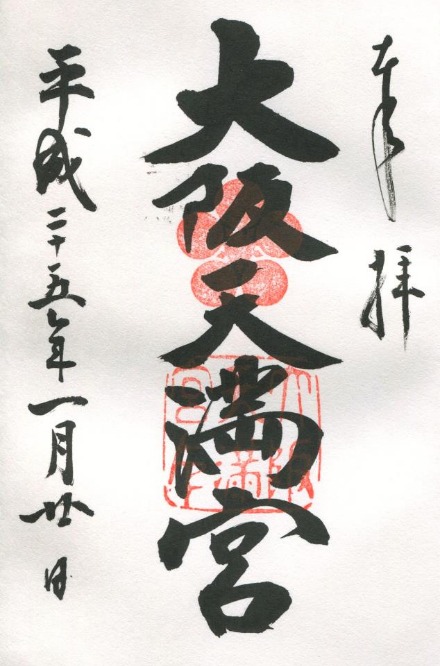 奉拝
大阪天満宮
平成二十五年一月廿日